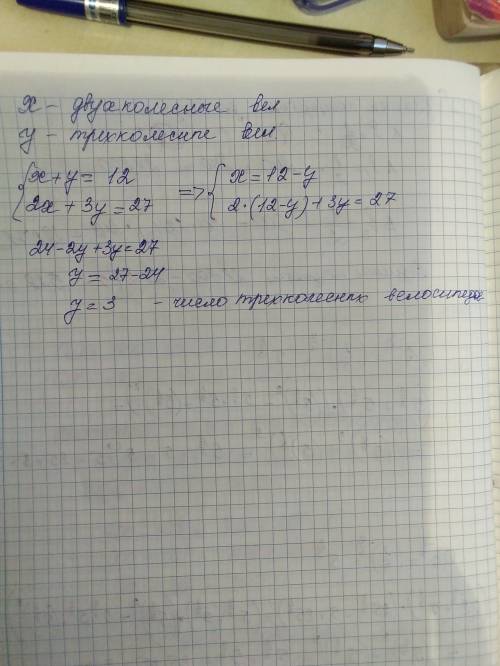 x - двухколесные вел
y - трехколесные вел
{x+y = 12 => {x = 12-y
{2x + 3y = 27 {2·(12-y)+3y = 27
24-2y+3y=27
y = 27-24
y = 3 - число трехколесных велосипедов